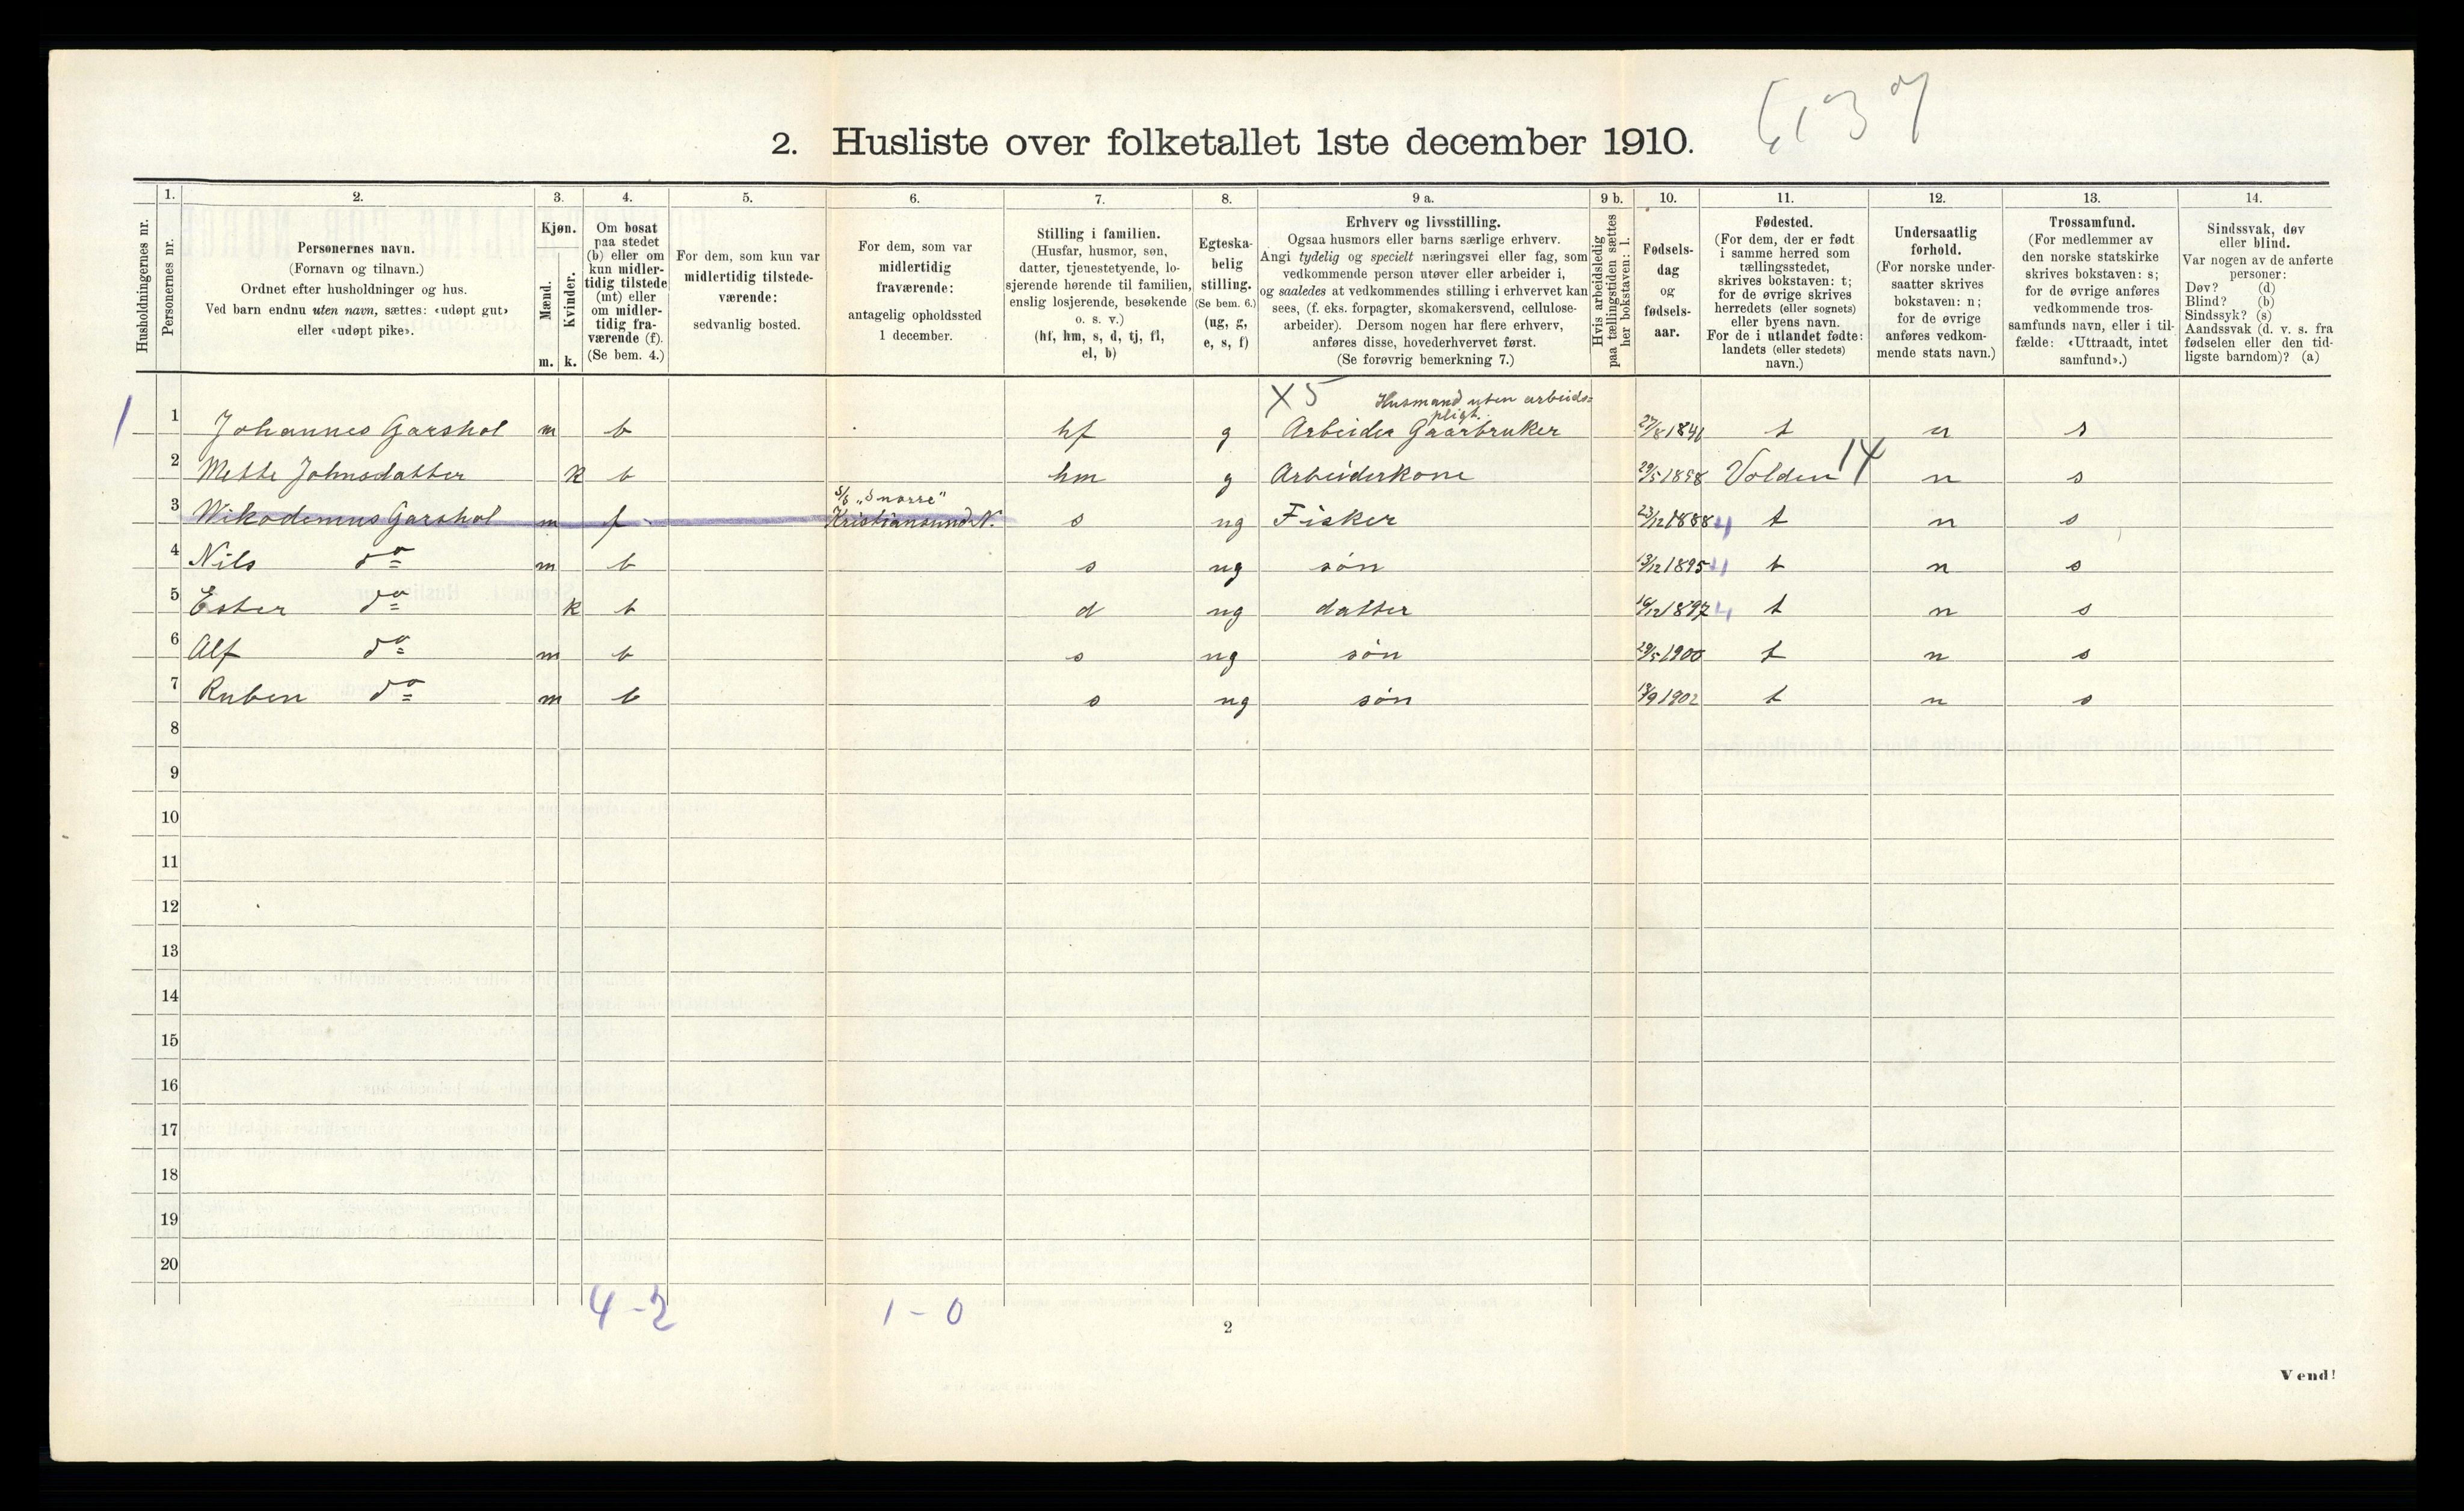 2. Husliste over folketallet 1ste december 1910.
1. 2. 3. 4. 5. 6. 7. 8. 9 a. 9 b. 10. 11. 12. 13. 14.
Husholdningernes nr.
Personernes nr.
Personernes navn.
(Fornavn og tilnavn.)
Ordnet efter husholdninger og hus.
Ved barn endnu uten navn, sættes: «udøpt gut»
eller «udøpt pike».
Kjøn.
Mænd.
Kvinder.
m. k.
Om bosat
paa stedet
(b) eller om
kun midler-
tidig tilstede
(mt) eller
om midler-
tidig fra-
værende (f).
(Se bem. 4.)
For dem, som kun var
midlertidig tilstede-
værende:
sedvanlig bosted.
For dem, som var
midlertidig
fraværende:
antagelig opholdssted
1 december.
Stilling i familien.
(Husfar, husmor, søn,
datter, tjenestetyende, lo-
sjerende hørende til familien,
enslig losjerende, besøkende
o. s. v.)
(hf, hm, s, d, tj, fl,
el, b)
Egteska-
belig
stilling.
(Se bem. 6.)
(ug, g,
e, s, f)
Erhverv og livsstilling.
Ogsaa husmors eller barns særlige erhverv.
Angi tydelig og specielt næringsvei eller fag, som
vedkommende person utøver eller arbeider i,
og saaledes at vedkommendes stilling i erhvervet kan
sees, (f. eks. forpagter, skomakersvend, cellulose-
arbeider). Dersom nogen har flere erhverv,
anføres disse, hovederhvervet først.
(Se forøvrig bemerkning 7.)
Hvis arbeidsledig
paa tællingstiden sættes
her bokstaven: l.
Fødsels-
dag
og
fødsels-
aar.
Fødested.
(For dem, der er født
i samme herred som
tællingsstedet,
skrives bokstaven: t;
for de øvrige skrives
herredets (eller sognets)
eller byens navn.
For de i utlandet fødte:
landets (eller stedets)
navn.)
Undersaatlig
forhold.
(For norske under-
saatter skrives
bokstaven: n;
for de øvrige
anføres vedkom-
mende stats navn.)
Trossamfund.
(For medlemmer av
den norske statskirke
skrives bokstaven: s;
for de øvrige anføres
vedkommende tros-
samfunds navn, eller i til-
fælde: «Uttraadt, intet
samfund».)
Sindssvak, døv
eller blind.
Var nogen av de anførte
personer:
Døv? (d)
Blind? (b)
Sindssyk? (s)
Aandssvak (d. v. s. fra
fødselen eller den tid-
ligste barndom)? (a)
X 5 Husmand uten arbeids=
pligt.
1 1 Johannes Garshol m b hf g Arbeider Gaarbruker t n s
2 Mette Johnsdatter k b hm g Arbeiderkone 29/5 1858 Volden 14 n s
S/S "Snorre"
3 Nikodemus Garshol m f Kristiansund N. s ug Fisker 23/12 1888 4 t n s
4 Nils do m b s ug søn 13/12 1895 4 t n s
5 Ester do k b d ug datter 16/12 1897 4 t n s
6 Alf do m b s ug søn 29/5 1900 t n s
7 Ruben do m b s ug søn 18/9 1902 t n s
8
9
10
11
12
13
14
15
16
17
18
19
20
4-2 1-0
2
Vend!